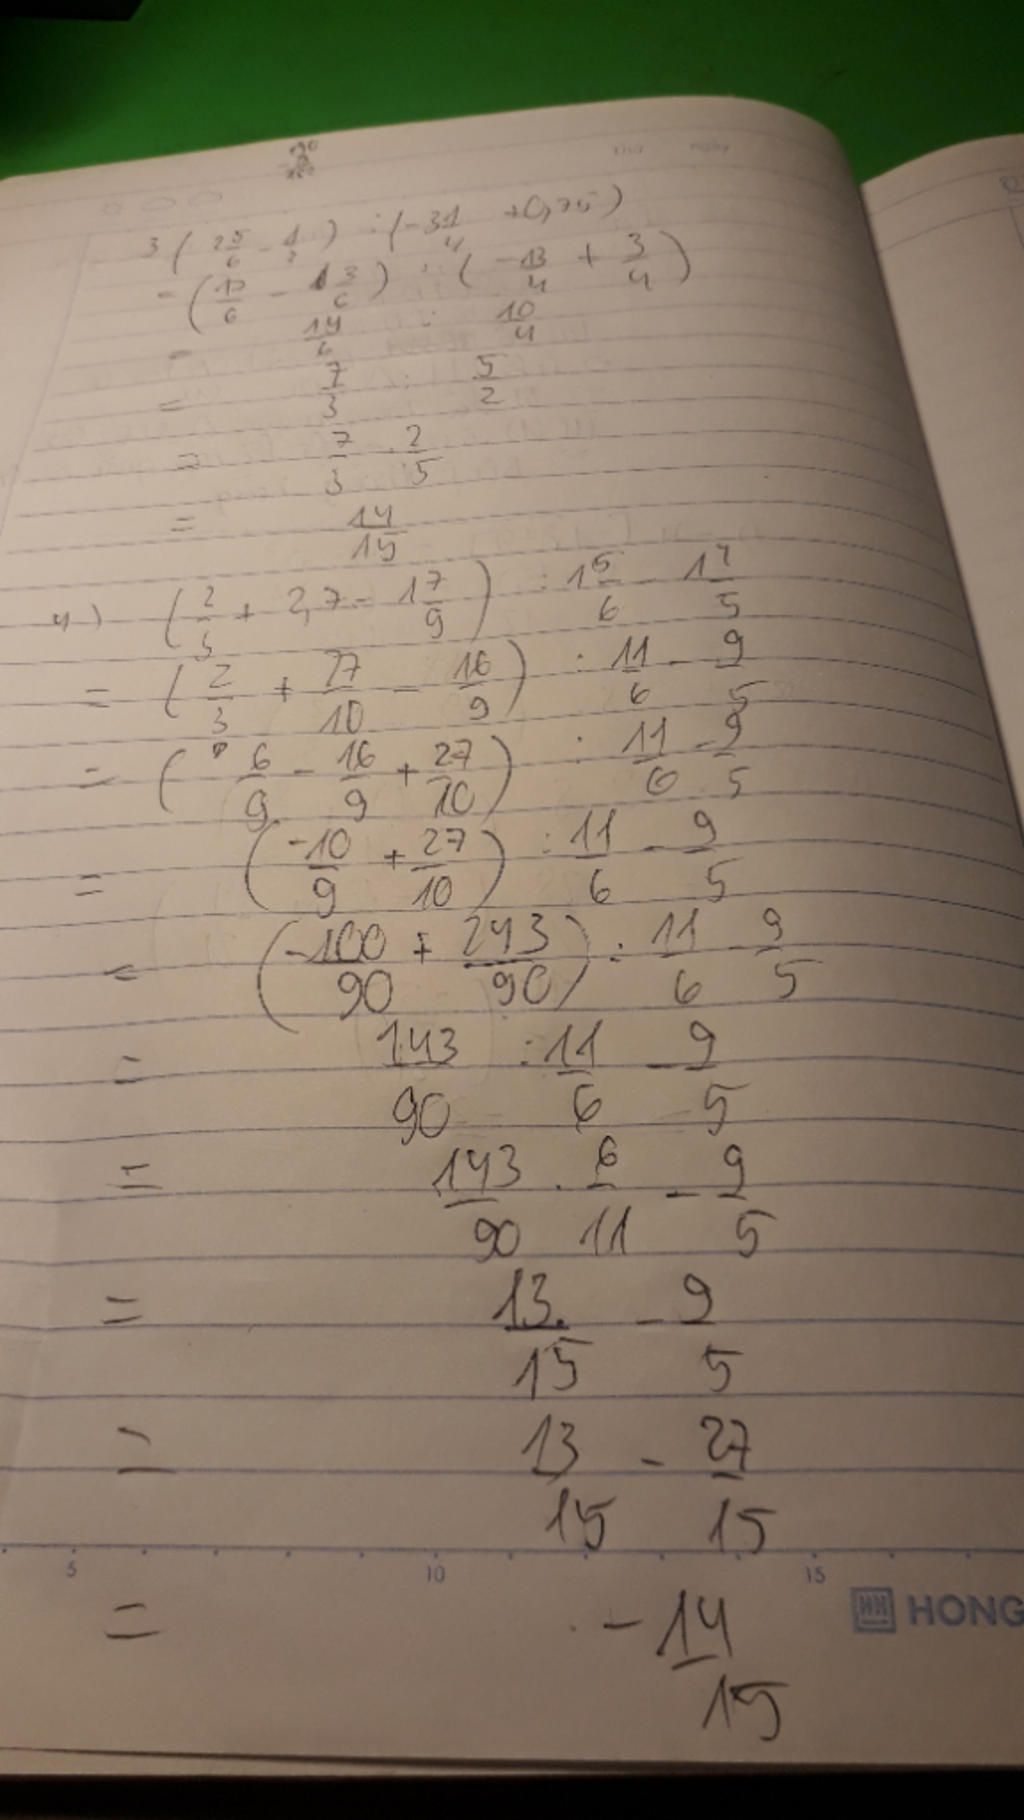 190
thứ ngày
3 ( 2 5/6 - 1/2 ) : ( -3 1/4 + 0,75 )
= ( 17/6 - 3/6 ) : ( -13/4 + 3/4 )
= 14/6 : 10/4
= 7/3 : 5/2
= 7/3 . 2/5
= 14/15
4) ( 2/3 + 2,7 - 1 7/9 ) : 1 5/6 - 1 4/5
= ( 2/3 + 27/10 - 16/9 ) : 11/6 - 9/5
= ( 6/9 - 16/9 + 27/10 ) : 11/6 - 9/5
= ( -10/9 + 27/10 ) : 11/6 - 9/5
= ( -100/90 + 243/90 ) : 11/6 - 9/5
= 143/90 : 11/6 - 9/5
= 143/90 . 6/11 - 9/5
= 13/15 - 9/5
= 13/15 - 27/15
5 10 15
HONG
= -14/15